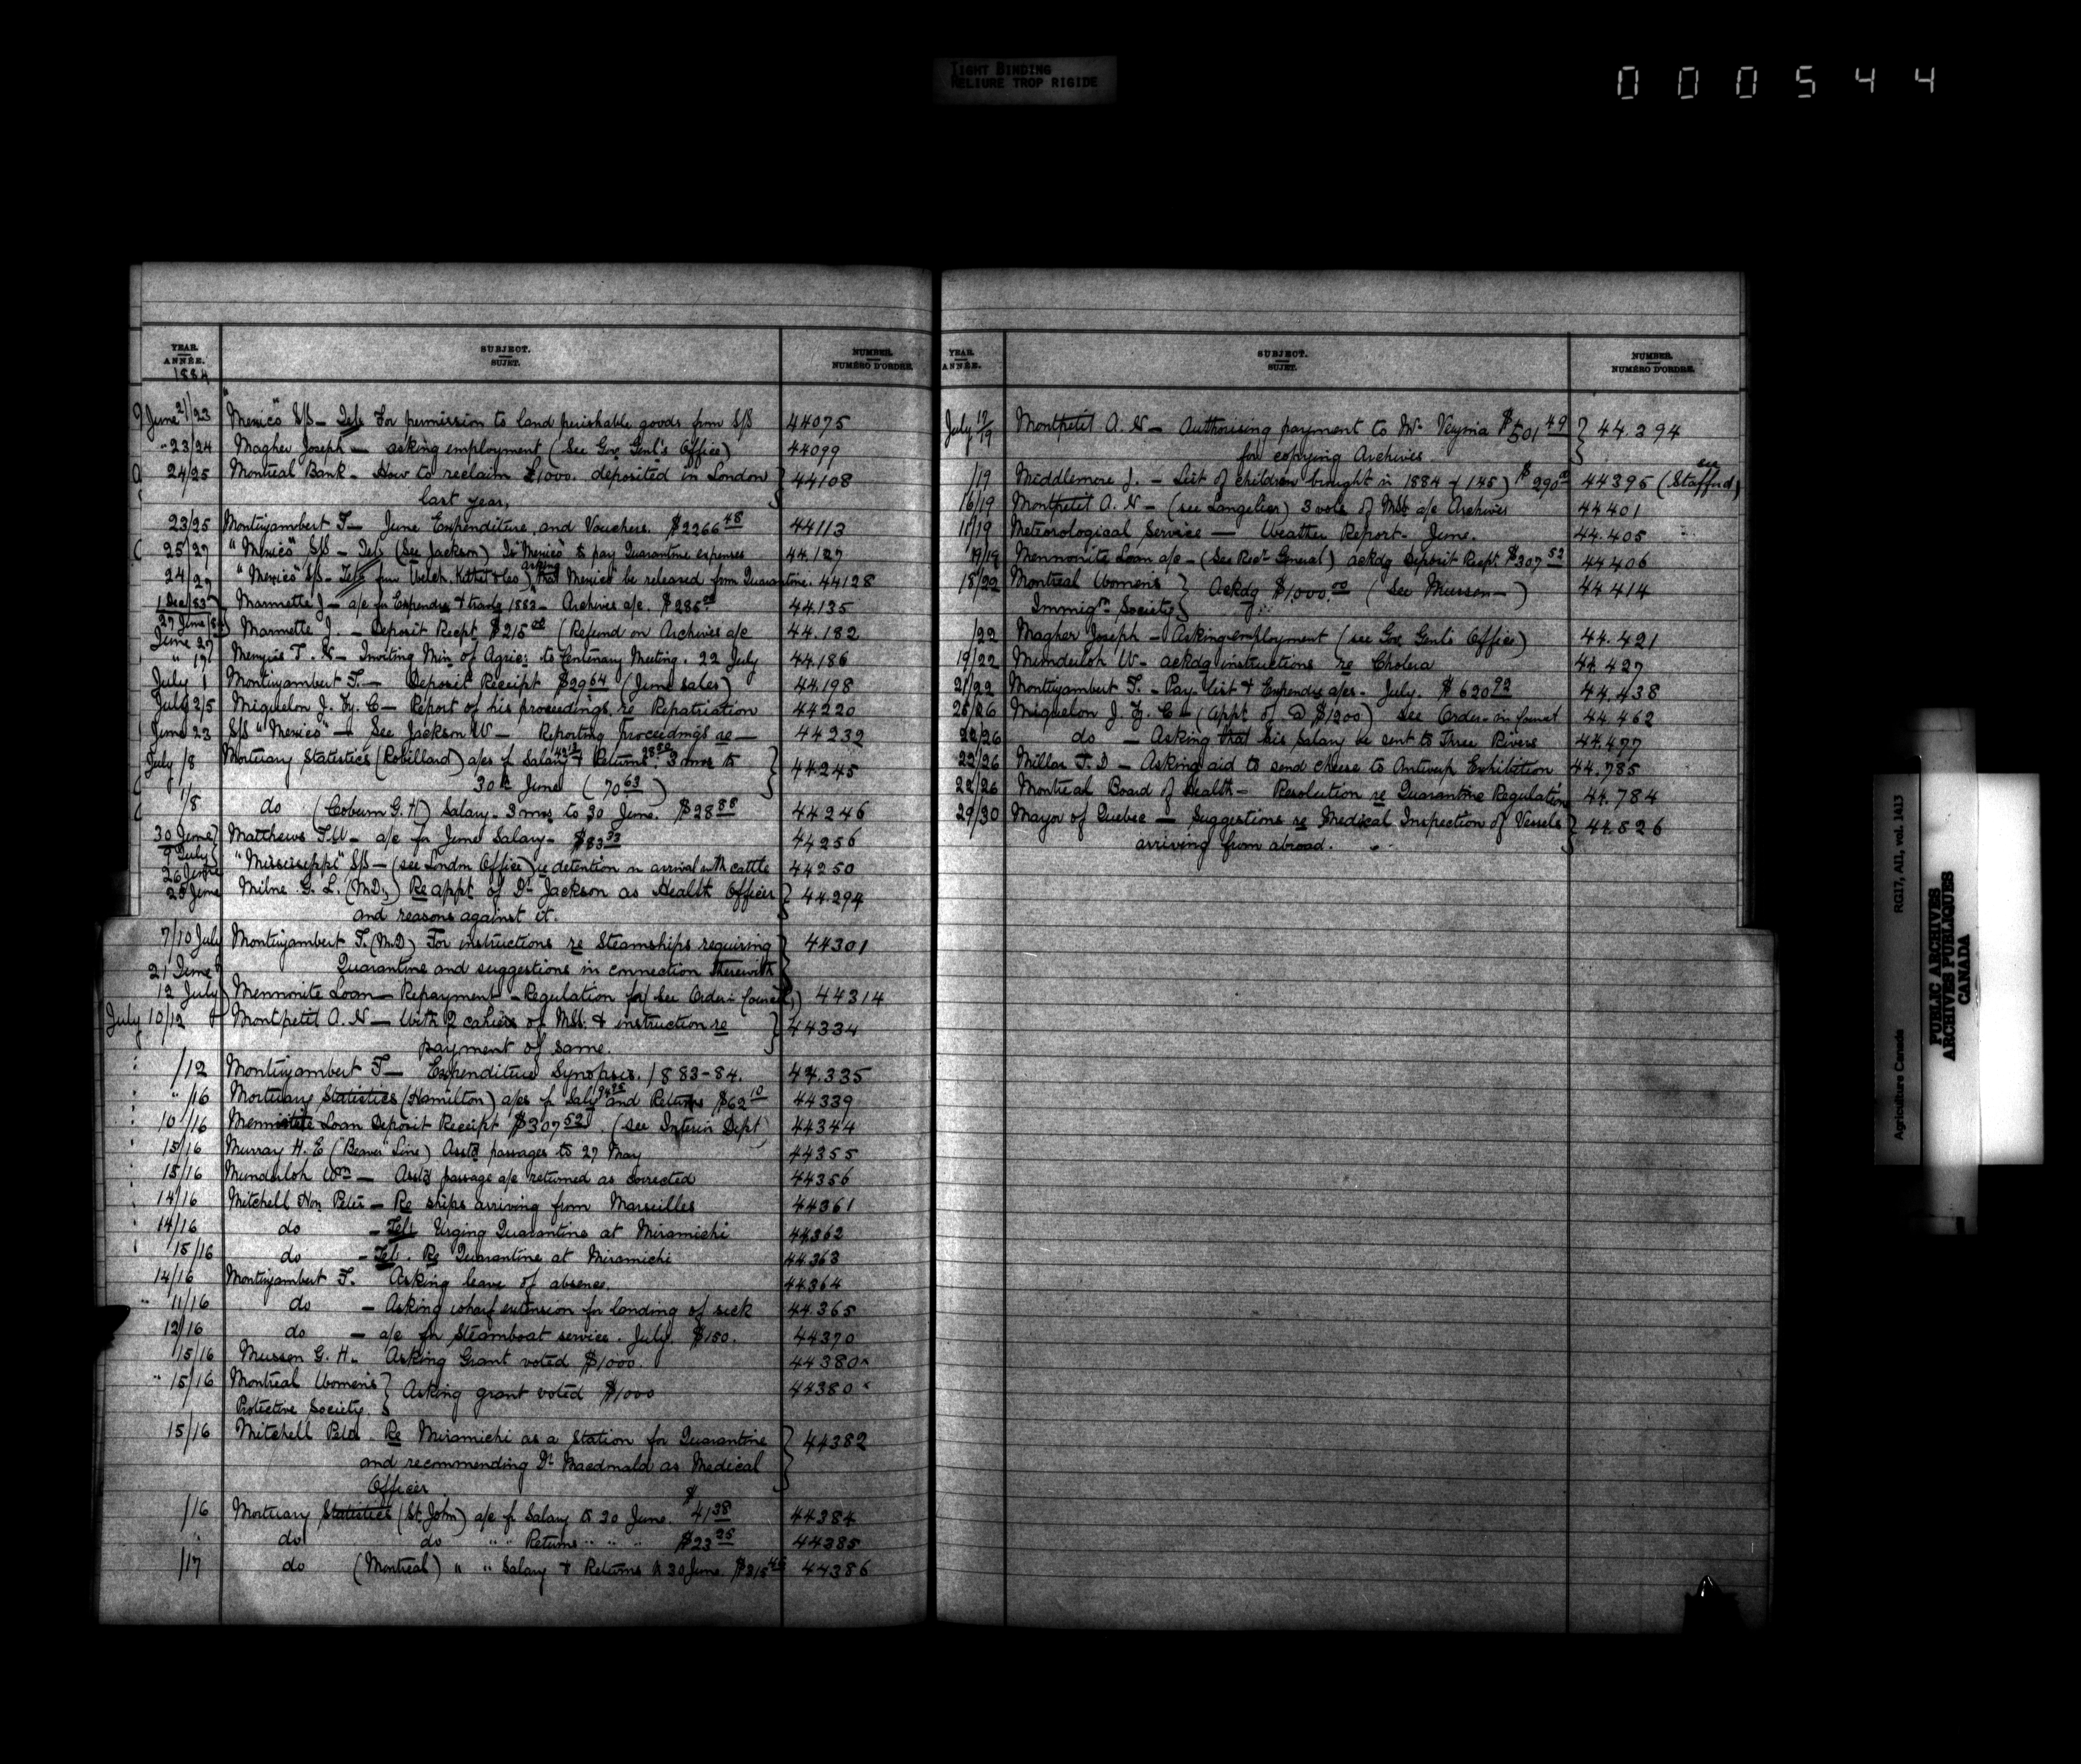 TIGHT BINDING
RELIURE TROP RIGIDE
000544
YEAR. ANNÉE. SUBJECT. SUJET. NUMBER. NUMÉRO D'ORDRE.
1884
June 21/23 "Mexico" S/S — Tels For permission to land perishable goods from S/S 44075
" 23/24 Magher Joseph — asking employment (See Gov. Genl's Office) 44099
24/25 Montreal Bank — How to reclaim £1000. deposited in London } 44108
last year,
23/25 Montizambert F — June Expenditure, and Vouchers. $2266 48 44113
25/27 "Mexico" S/S — Tels (See Jackson) To "Mexico" to pay Quarantine expenses 44.127
24/27 "Mexico" S/S — Tels from Welch, Kithet & Co asking that "Mexico" be released from Quarantine. 44128
1 Dec/83 Marmette J — a/c for Expendre & travlg 1883 — Archives a/c. $286 44.135
27 June/84 Marmette J. — Deposit Recpt. $215 00 (Refund on Archives a/c 44.182
June 27 Menzies T. N — Inviting Min of Agric: to Centenary Meeting. 22 July 44.186
July 1 Montizambert F. — Deposit Receipt $29 64 (June sales) 44.198
July 2/5 Miquelon J. Zy. C — Report of his proceedings re Repatriation 44220
June 23 S/S "Mexico" — See Jackson W — Reporting proceedings re — 44232
July /8 Mortuary Statistics (Robillard) a/cs f Salary & Returns 3 mos to } 44245
30th June (70 63)
1/8 do (Coburn G. H) Salary — 3 mos to 30 June. $28 88 44246
30 June 9 July Matthews F.W — a/c for June Salary — $83 33 44256
26 June "Mississippi" S/S — (see London Office) re detention on arrival with cattle 44250
25 June Milne G. L. (M.D.) Re appt of Dr Jackson as Health Officer } 44.294
and reasons against it.
7/10 July Montizambert F. (M.D) For instructions re Steamships requiring } 44301
Quarantine and suggestions in connection therewith
21 June 12 July Mennonite Loan — Repayment — Regulation for/ See Order in Council,) 44314
July 10/12 Montpetit A. N — With 2 cahiers of MSS. & instruction re } 44334
payment of same.
/12 Montizambert F — Expenditure Synopsis. 1883-84. 44.335
" /16 Mortuary Statistics (Hamilton) a/cs f Saly and Returns $62 10 44339
10/16 Mennonite Loan Deposit Receipt $307 52. (see Interior Dept) 44344
15/16 Murray H. E (Beaver Line) Asstd passages to 27 May 44355
15/16 Munderloh Wm — Asstd passage a/c returned as corrected 44356
14/16 Mitchell Hon Peter — Re ships arriving from Marseilles 44361
14/16 do — Tels Urging Quarantine at Miramichi 44362
15/16 do — Tel. Re Quarantine at Miramichi 44363
14/16 Montizambert F. Asking leave of absence. 44364
" 11/16 do — Asking wharf extension for landing of sick 44.365
12/16 do — a/c for Steamboat service. July. $150. 44370
15/16 Musson G. H. Asking Grant voted $1000. 44380
" 15/16 Montreal Women's } Asking grant voted $1000 44380
Protective Society.
15/16 Mitchell Peter. Re Miramichi as a Station for Quarantine } 44382
and recommending Dr Macdonald as Medical
Officer
/16 Mortuary Statistics (St. John) a/c f Salary to 30 June. $41 38 44384
do do " " Returns " " " $23 25 44385
/17 do (Montreal) " " Salary & Returns to 30 June. $315 45 44386
YEAR. ANNÉE. SUBJECT. SUJET. NUMBER. NUMÉRO D'ORDRE.
July 12/19 Montpetit A. N — Authorising payment to Mr $501 49 } 44.394
for copying Archives.
/19 Middlemore J. — List of children brought in 1884 (145) $290 44395 (see Stafford)
16/19 Montpetit A. N — (see Langelier) 3 vols of MSS a/c Archives 44401
11/19 Meteorological Service — Weather Report — June. 44.405
19/19 Mennonite Loan a/c — (See Recr General) ackdg Deposit Recpt. $307 52 44406
18/22 Montreal Women's } Ackdg $1000.00 (See Musson —) 44414
Immign Society
/22 Magher Joseph — Asking employment (see Gov Genl's Office) 44.421
19/22 Munderloh W — ackdg instructions re Cholera 44.427
21/22 Montizambert F. — Pay-list & Expendre a/cs — July. $620 92 44.438
25/26 Miquelon J. Zy. C — (Appt of @ $1200) see Order-in-Council 44.462
22/26 do — Asking that his Salary be sent to Three Rivers 44.477
22/26 Millar T. D — Asking aid to send cheese to Antwerp Exhibition 44.785
22/26 Montreal Board of Health — Resolution re Quarantine Regulations 44.784
29/30 Mayor of Quebec — Suggestions re Medical Inspection of Vessels } 44.526
arriving from abroad.
Agriculture Canada RG17, AII, vol. 1413
PUBLIC ARCHIVES
ARCHIVES PUBLIQUES
CANADA